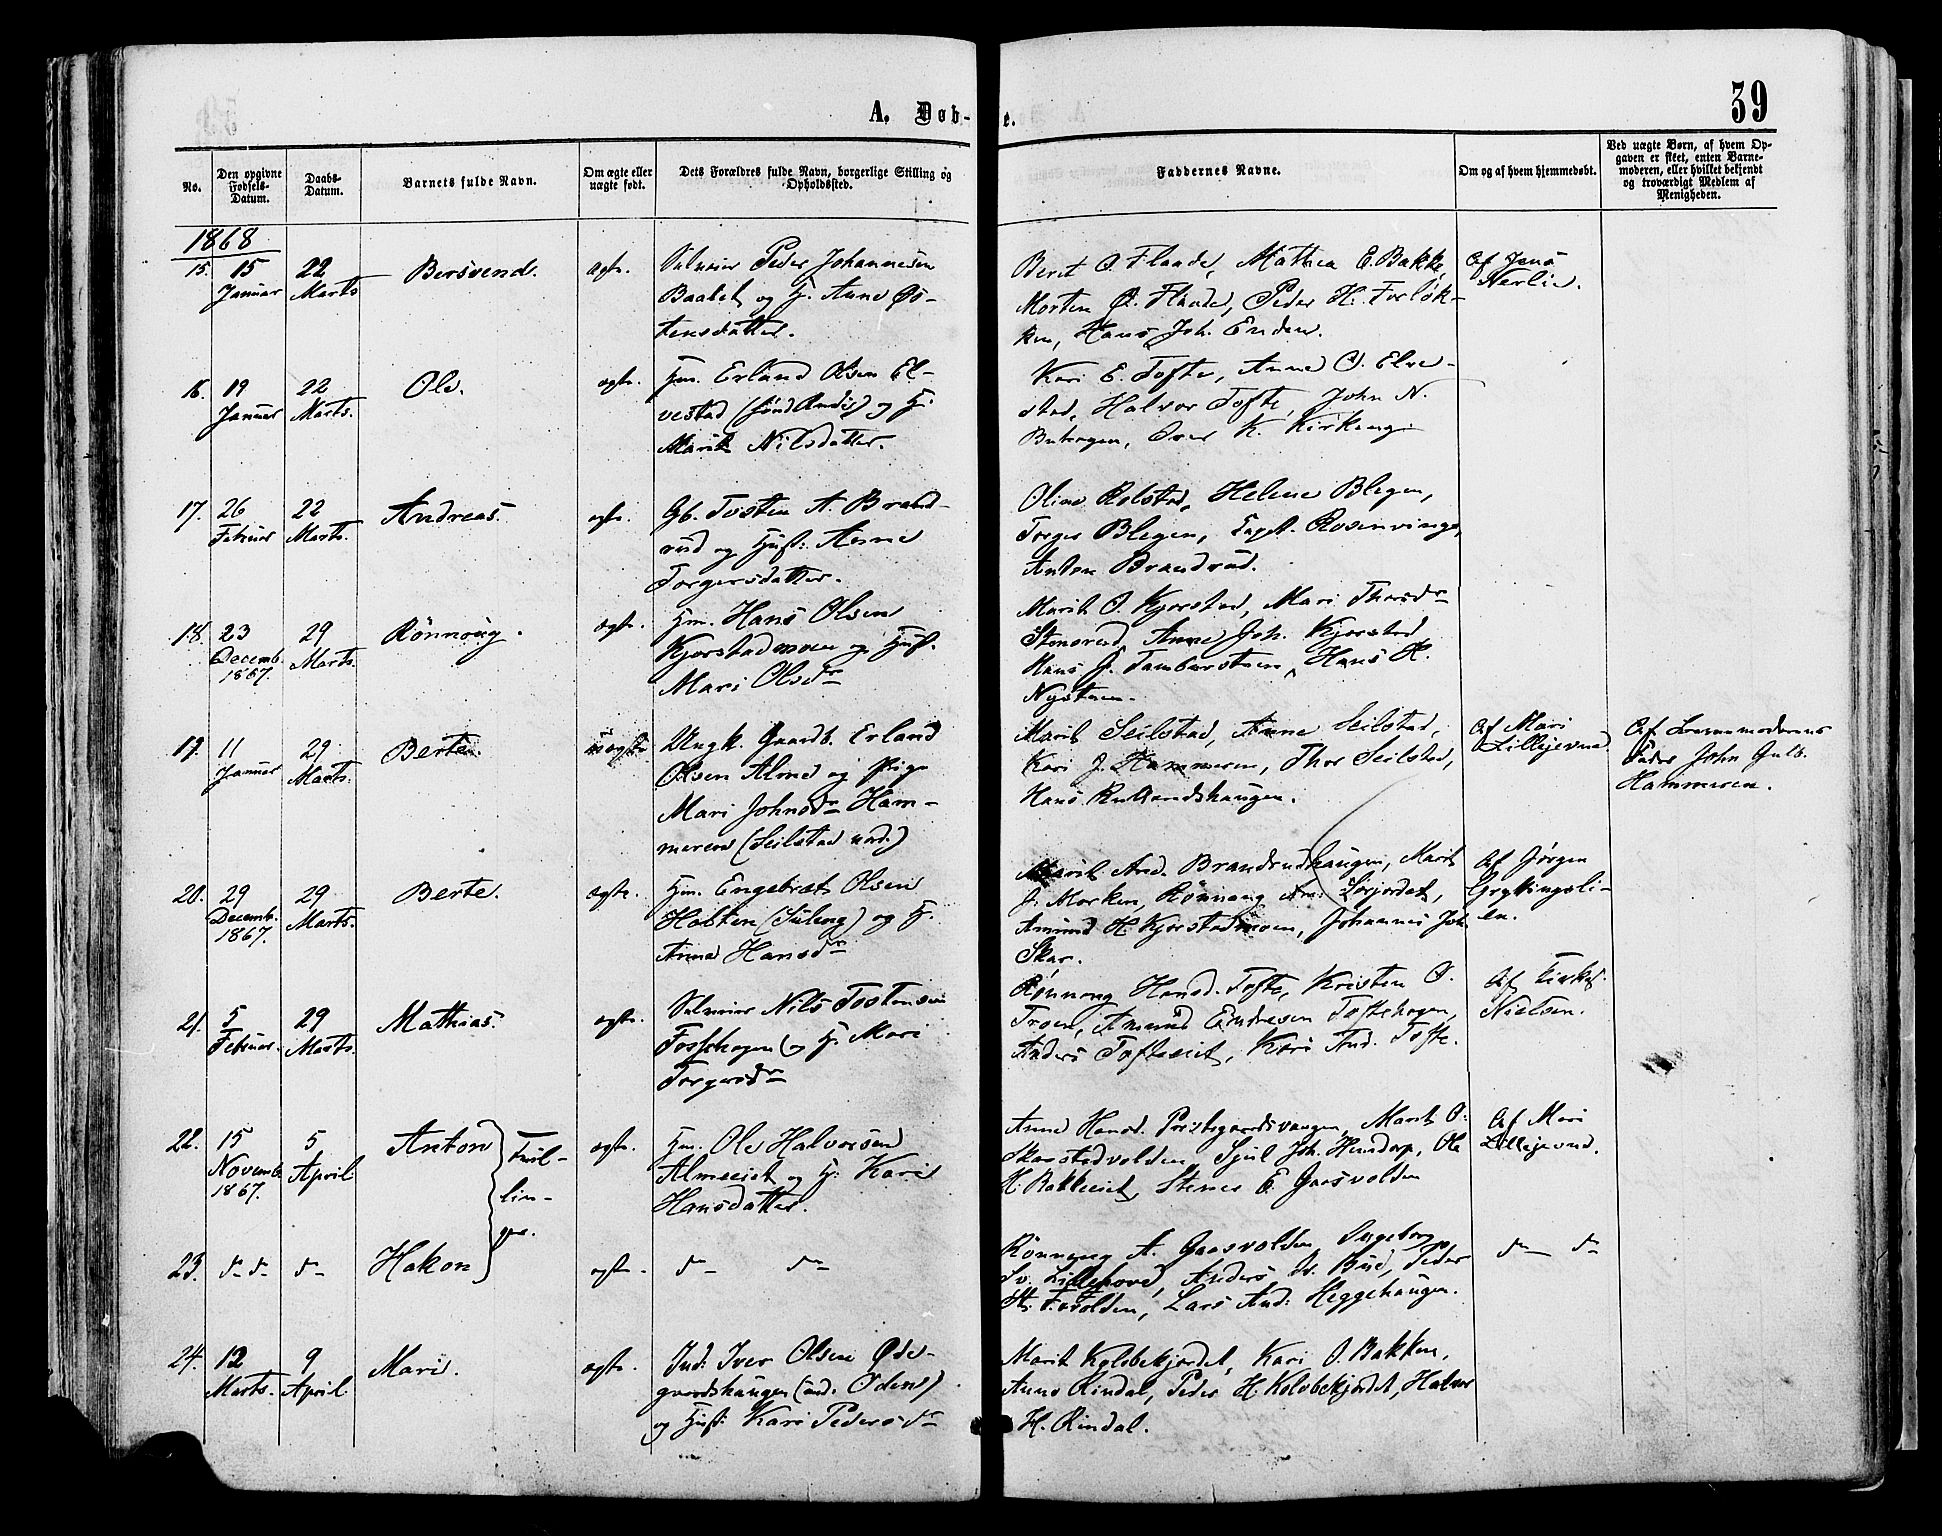 A. Døb-
e.
39
No.
Den opgivne Fødsels-Datum.
Daabs-Datum.
Barnets fulde Navn.
Om ægte eller uægte født.
Dets Forældres fulde Navn, borgerlige Stilling og Opholdssted.
Faddernes Navne.
Om og af hvem hjemmedøbt.
Ved uægte Børn, af hvem Opgaven er skeet, enten Barnemoderen, eller hvilket bekjendt og troværdigt Medlem af Menigheden.
1868
15. 15 Januar
22 Marts
Bersvend.
ægte.
Peder Johannesen
Baaket og H. Anne Øs-
tensdatter.
Berit O. Flaade, Mathea E. Bakke,
Morten O. Flaade, Peder H. Forløk-
ken, Hans Joh. Enden.
Af Jens
Nerlie.
16. 19 Januar
22 Marts.
Ole.
ægte.
Hm. Erland Olsen El-
vestad (søndAmdis) og H.
Marit Nilsdatter.
Kari E. Tofte, Anne O. Elve-
stad, Halvor Tofte, John N.
Iver K. Kirkeng.
17. 26 Februar
22 Marts.
Andreas.
ægte.
Gb. Tosten A. Brand-
rud og Hust. Anne
Torgersdatter.
Oline Rolstad, Helene Blegen,
Torger Blegen, Capt. Rosenvinge,
Anton Brandrud.
18. 23 Decemb. 1867.
29 Marts.
Rønnoug.
ægte.
Hm. Hans Olsen
Kjorstadmoen og Hust.
Mari Olsdr
Marit O. Kjorstad, Mari Thorsdr
Stenerud, Anne Joh. Kjorstad
Hans J. Tamburstuen, Hans H.
Nystuen.
19. 11 Januar
29 Marts.
Berte.
uægte
Ungk. Gaardb. Erland
Olsen Alme og Pige
Mari Johnsdr Ham-
meren (Seilstad und.)
Marit Seilstad, Anne Seilstad,
Kari J. Hammeren, Thor Seilstad,
Hans Rullandshaugen.
Af Mari
Lillejevnd.
Af Barnemoderens
Fader John Gulb.
Hammeren.
20. 29 Decemb. 1867.
29 Marts.
Berte.
ægte.
Hm. Engebret Olsen
Holsten (Tuleng) og H.
Anne Hansdr
Marit And. Brandrudhaugen, Marit
J. Morken, Rønnaug Am. Lørjordet,
Amund H. Kjorstadmoen, Johannes Joh.
Skar.
Af Jørgen
Gryttingsli-
en.
21. 5 Februar.
29 Marts.
Mathias.
ægte.
Nils Tostensen
Fosshagen og H. Mari
Torgersdr
Rønnaug Hansd. Tofte, Kristen O.
Troen, Amund Endresen Toftehagen,
Anders Tofteeiet, Kari And. Tofte.
Af Kirkes.
Nielsen.
22. 15 Novemb. 1867.
5 April
Anton
Tvil-
lin-
ger.
ægte.
Hm. Ole Halvorsen
Almeeiet og H. Kari
Hansdatter.
Anne Hansd. Prestegaardsvangen, Marit O.
Skarstadvolden, Sjul Joh. Hundorp, Ole
H. Bakkeeiet, Stener E. Gaasvolden
Af Mari
Lillejevnd.
23. do do
do
Hakon
ægte.
do do
Rønnaug A. Gaasvolden, Ingeborg
Sv. Lillehove, Anders Bue, Peder
Lars And. Heggehaugen.
do do
24. 12 Marts.
9 April
Mari.
ægte.
Ind. Iver Olsen Øde-
gaardshaugen (und. Odens)
og Hust. Kari Pedersdr
Marit Kolobekjordet, Kari O. Bakken,
Anne Rindal, Peder H. Kolobekjordet, Halvor
H. Rindal.